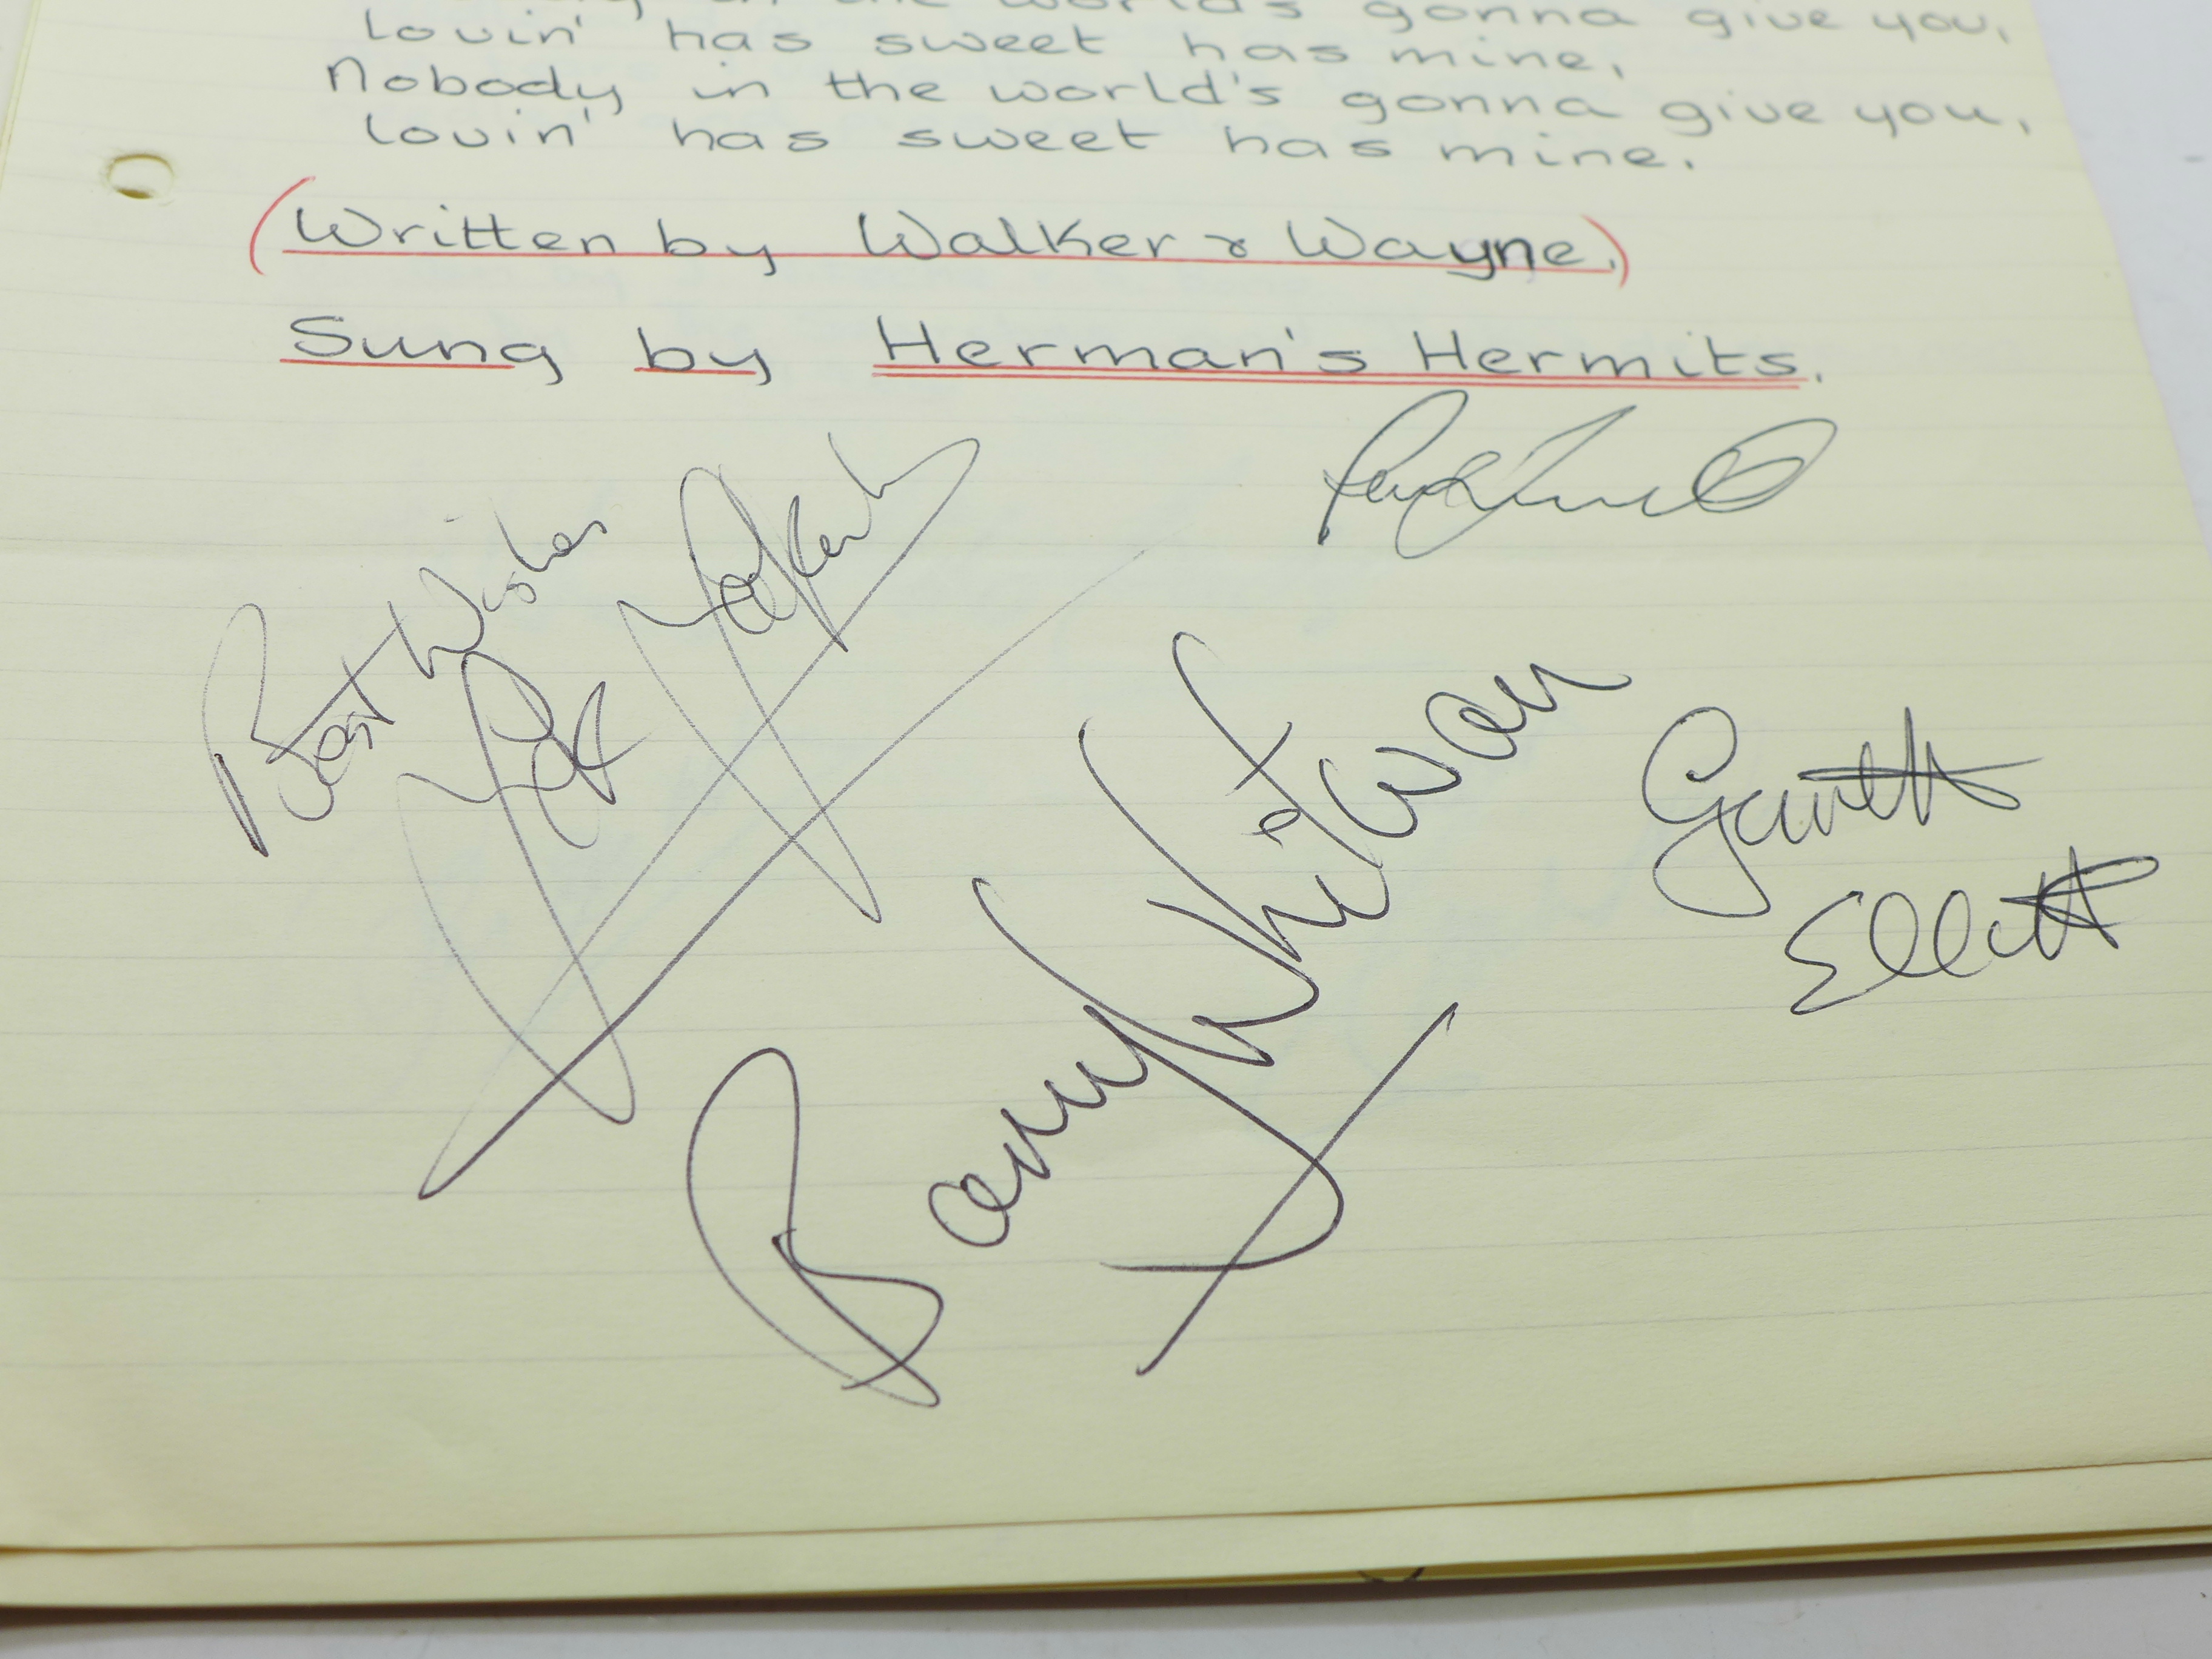 in the world's gonna give you,
Lovin' has sweet has mine,
Nobody in the world's gonna give you,
Lovin' has sweet has mine.
(Written by Walker & Wayne.)
Sung by Herman's Hermits.
Best Wishes
Barry Whitwam
Garrett
Elliott